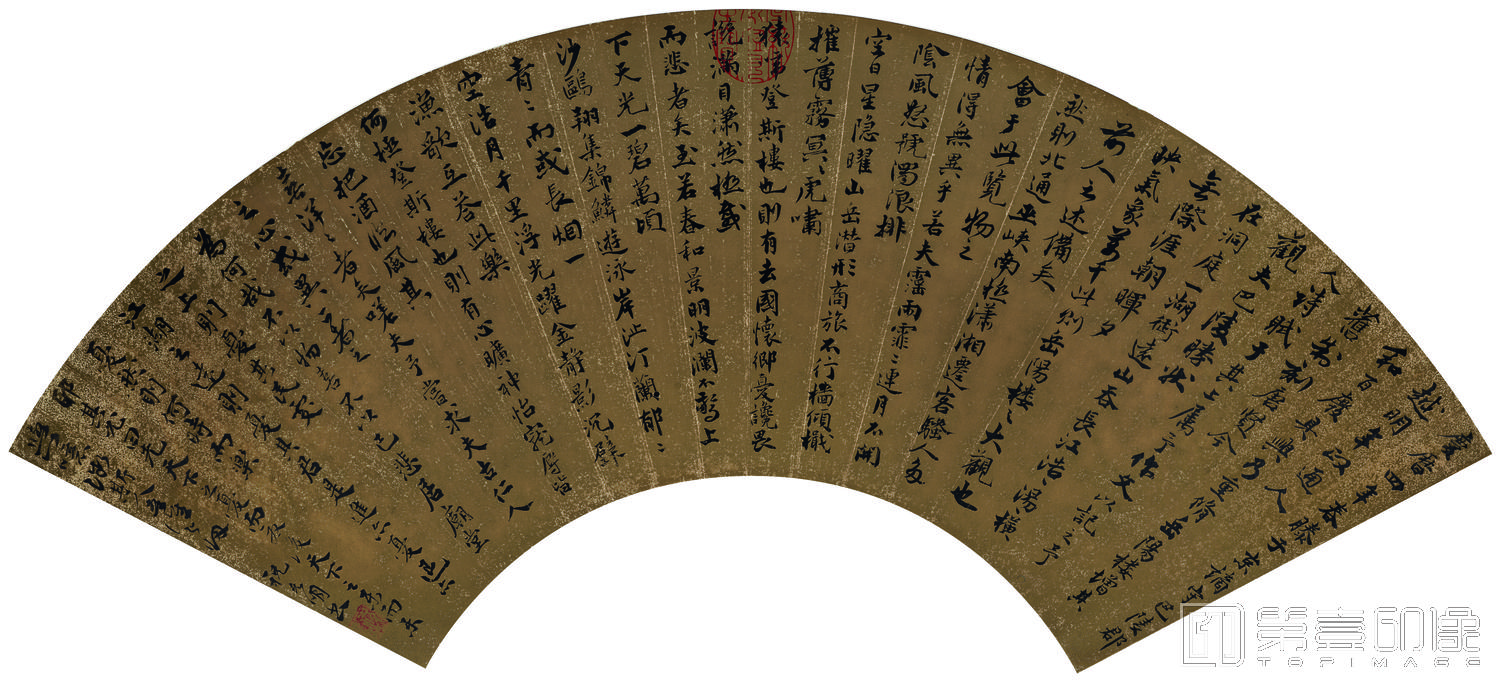 慶曆四年春滕于京謫守巴陵郡
越明年政通
和百廢具興乃重脩岳陽樓增其
舊制刻唐賢今
人詩賦于其上屬予作文以記之予
觀夫巴陵勝狀
在洞庭一湖銜遠山吞長江浩湯橫
無際涯朝暉夕
映氣象萬千此則岳陽樓之大觀也
前人之述備矣
然則北通巫峽南極瀟湘遷客騷人多
會于此覽物之
情得無異乎若夫霪雨霏〻連月不開
陰風怒號濁浪排
空日星隱曜山岳潛形商旅不行檣傾檝
摧薄霧冥〻虎嘯
猿啼登斯樓也則有去國懷鄉憂讒畏
譏滿目瀟然極感
而悲者矣至若春和景明波瀾不驚上
下天光一碧萬頃
沙鷗翔集錦鱗遊泳岸沚汀蘭郁〻
青〻而或長烟一
空浩月千里浮光躍金靜影沉璧
漁歌互荅此樂
何極登斯樓也則有心曠神怡寵辱皆
忘把酒臨風其
喜洋〻者矣嗟夫予嘗求夫古仁人
之心或異二者之
為何哉不以物喜不以己悲居廟堂
之上則憂其民處
江湖之遠則憂其君是進亦憂退亦
憂然則何時而樂
耶其必曰先天下之憂而憂後天下之樂而樂
微斯人吾誰與歸
祝允明書
第壹印像
TOPIMAGE